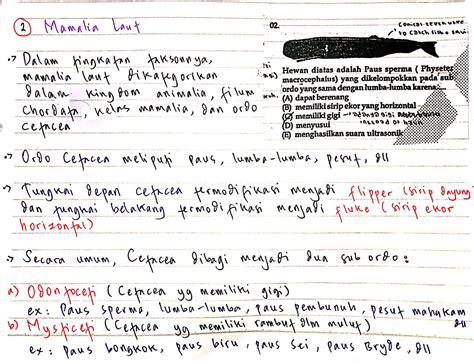 2 Mamalia Laut
-> Dalam tingkatan taksonnya,
mamalia laut dikategorikan
dalam kingdom animalia, filum
Chordata, kelas mamalia, dan ordo
cetacea
02.
to catch fish & squid
Hewan diatas adalah Paus sperma ( Physeter
macrocephalus) yang dikelompokkan pada sub
ordo yang sama dengan lumba-lumba karena:
(A) dapat berenang
(B) memiliki sirip ekor yang horizontal
(C) memiliki gigi
(D) menyusui
(E) menghasilkan suara ultrasonik
-> Ordo Cetacea meliputi paus, lumba-lumba, pesut, dll
-> Tungkai depan cetacea termodifikasi menjadi flipper (sirip dayung)
dan tungkai belakang termodifikasi menjadi fluke (sirip ekor
horizontal)
-> Secara umum, Cetacea dibagi menjadi dua sub ordo:
a) Odontoceti (Cetacea yg memiliki gigi)
ex: Paus sperma, lumba-lumba, paus pembunuh, pesut mahakam
dll
b) Mysticeti (Cetacea yg memiliki rambut dlm mulut)
ex: paus bongkok, paus biru, paus sei, paus Bryde, dll